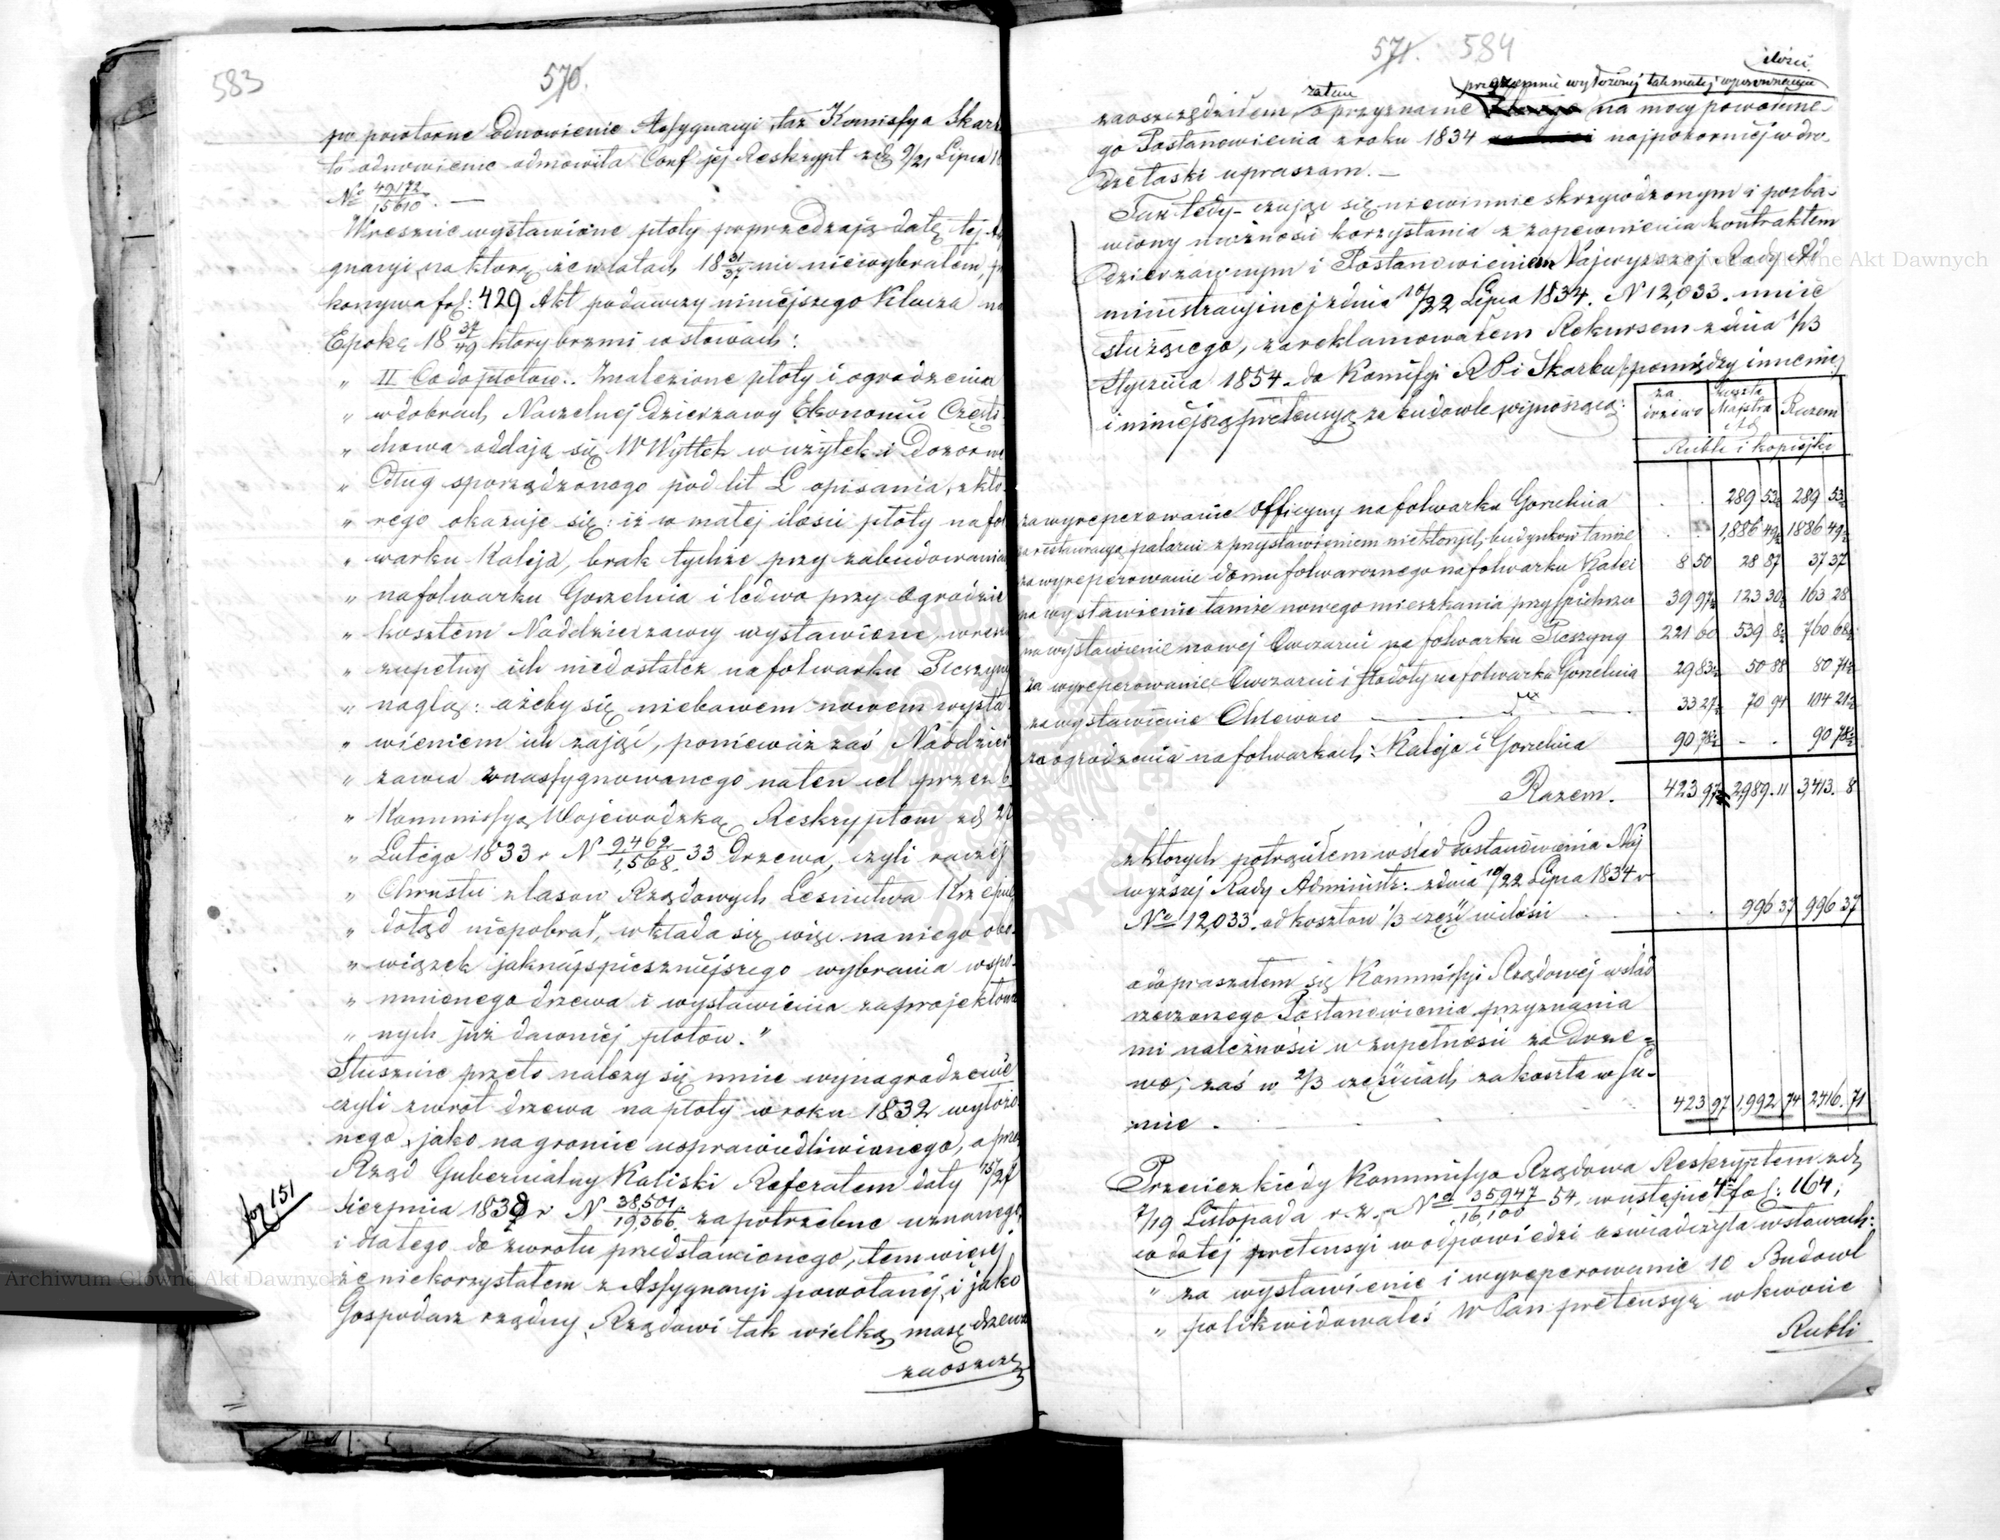 583
570.
po powtorne Odnowienie Assygnacyi, taż Komissya Skar
to odnowienie odmowiła Conf jej Reskrypt zd 9/21 Lipca 18
No 49172/15610. —
Wreszcie wystawione płoty poprzedzają datę tej A
gnacyi, na którą że w latach 18 31/37 nic niewybrałem,
konywa fol: 429 Akt podawczy niniejszego Klucza na
Epokę 18 37/49 który brzmi w słowach:
„ II Co do płotow.. Znalezione płoty i ogrodzenia
„ w dobrach Naczelnej Dzierzawy Ekonomii Często
„ chowa oddają się W Wyttek w użytek i Dozor we
„ Dług sporządzonego pod lit L opisania, z któ
„ rego okazuje się: iż w małej ilosci płoty na fol
„ warku Kaleja, brak tychże przy zabudowania
„ na folwarku Gorzelnia i ledwo przy ogrodzie
„ kosztem Naddzierzawcy wystawione, wresz
„ zupełny ich niedostatek na folwarku Pieszyny
„ naglą: ażeby się niebawem nowem wysta
„ wieniem ich zająć, ponieważ zaś Naddzier
„ zawca z naassygnowanego na ten cel przez b
„ Kommissyą Wojewodzką Reskryptem zd 2/
„ Lutego 1833 r N 9,462/1,568. 33 Drzewa, czyli raczej
„ Chrustu z lasow Rządowych Lesnictwa Krzepice
„ dotąd niepobrał, wkłada się więc na niego obo-
„ wiązek jaknajspieszniejszego wybrania wspo-
„ mnionego drzewa i wystawienia zaprojektowa
„ nych już dawniej płotow."
Słusznie przeto należy się mnie wynagrodzenie
czyli zwrot drzewa na płoty w roku 1832 wyłożo
nego, jako na groncie usprawiedliwionego, a przez
Rząd Gubernialny Kaliski Referatem daty 15/27
Sierpnia 1838 r N 38,501/19,366. za potrzebne uznanego,
i dlatego do zwrotu przedstawionego, tem więcej
że niekorzystałem z Assygnacyi powołanej, i jako
Gospodarz rządny, Rządowi tak wielką masę drzewa
zaoszczę
fog 151
571. 584
zaoszczędziłem, zatem o przyznanie przezemnie wyłożonej tak małej wyrownanej ilości na mocy powołane-
go Postanowienia z roku 1834 najpokorniej w dro-
dze łaski upraszam. —
Tak tedy czując się niewinnie skrzywdzonym i pozba-
wiony możnosci korzystania z zapewnienia kontraktem
dzierzawnym i Postanowieniem Najwyzszej Rady Ad
ministracyinej z dnia 10/22 Lipca 1834. N 12,033. mnie
służącego, zareklamowałem Rekursem z dnia 1/13
Stycznia 1854. do Komisyi R P i Skarbu pomiędzy innemi,
i niniejszą pretensyą za budowle wynoszącą:
za drzewo | Koszta Majstra i td | Razem
Rubli i kopiejki
za wyreperowanie officyny na folwarku Gorzelnia . . 289 53½ 289 53½
za restauracyą palarni z przystawieniem niektorych budynkow tamże . . 1,886 49½ 1886 49½
za wyreperowanie domu folwarcznego na folwarku Kalei 8 50 28 87 37 37
za wystawienie tamże nowego mieszkania przy Spichrzu 39 97½ 123 30½ 163 28
za wystawienie nowej Owczarni na folwarku Pieszyny 221 60 539 8½ 760 68½
za wyreperowanie Owczarni i stodoły na folwarku Gorzelnia 29 83½ 50 88 80 71½
za wystawienie Chlewow — — 33 27½ 70 94 104 21½
za ogrodzenia na folwarkach: Kaleja i Gorzelnia 90 78½ - . 90 78½
Razem. 423 97½ 2,989. 11 3,413. 8
z ktorych potrąciłem w slad Postanowienia Naj
wyzszej Rady Administr: z dnia 10/22 Lipca 1834 r
No 12,033. od kosztow 1/3 częsć w ilosci . . . 996 37 996 37
a dopraszałem się Kommissyi Rządowej w slad
rzeczonego Postanowienia przyznania
mi należnosci w zupełnosci za Drze=
wo, zaś w 2/3 częściach za koszta w su-
mie . 423 97 1,992 74 2416. 71
Przeciez kiedy Kommissya Rządowa Reskryptem z d
7/19 Listopada r. z. No 35947/16,100 54. w ustępie 4m fol: 164,
co do tej pretensyi w odpowiedzi oświadczyła w słowach:
„ za wystawienie i wyreperowanie 10 Budowl
„ polikwidowałeś W Pan pretensyą w kwocie
Rubli